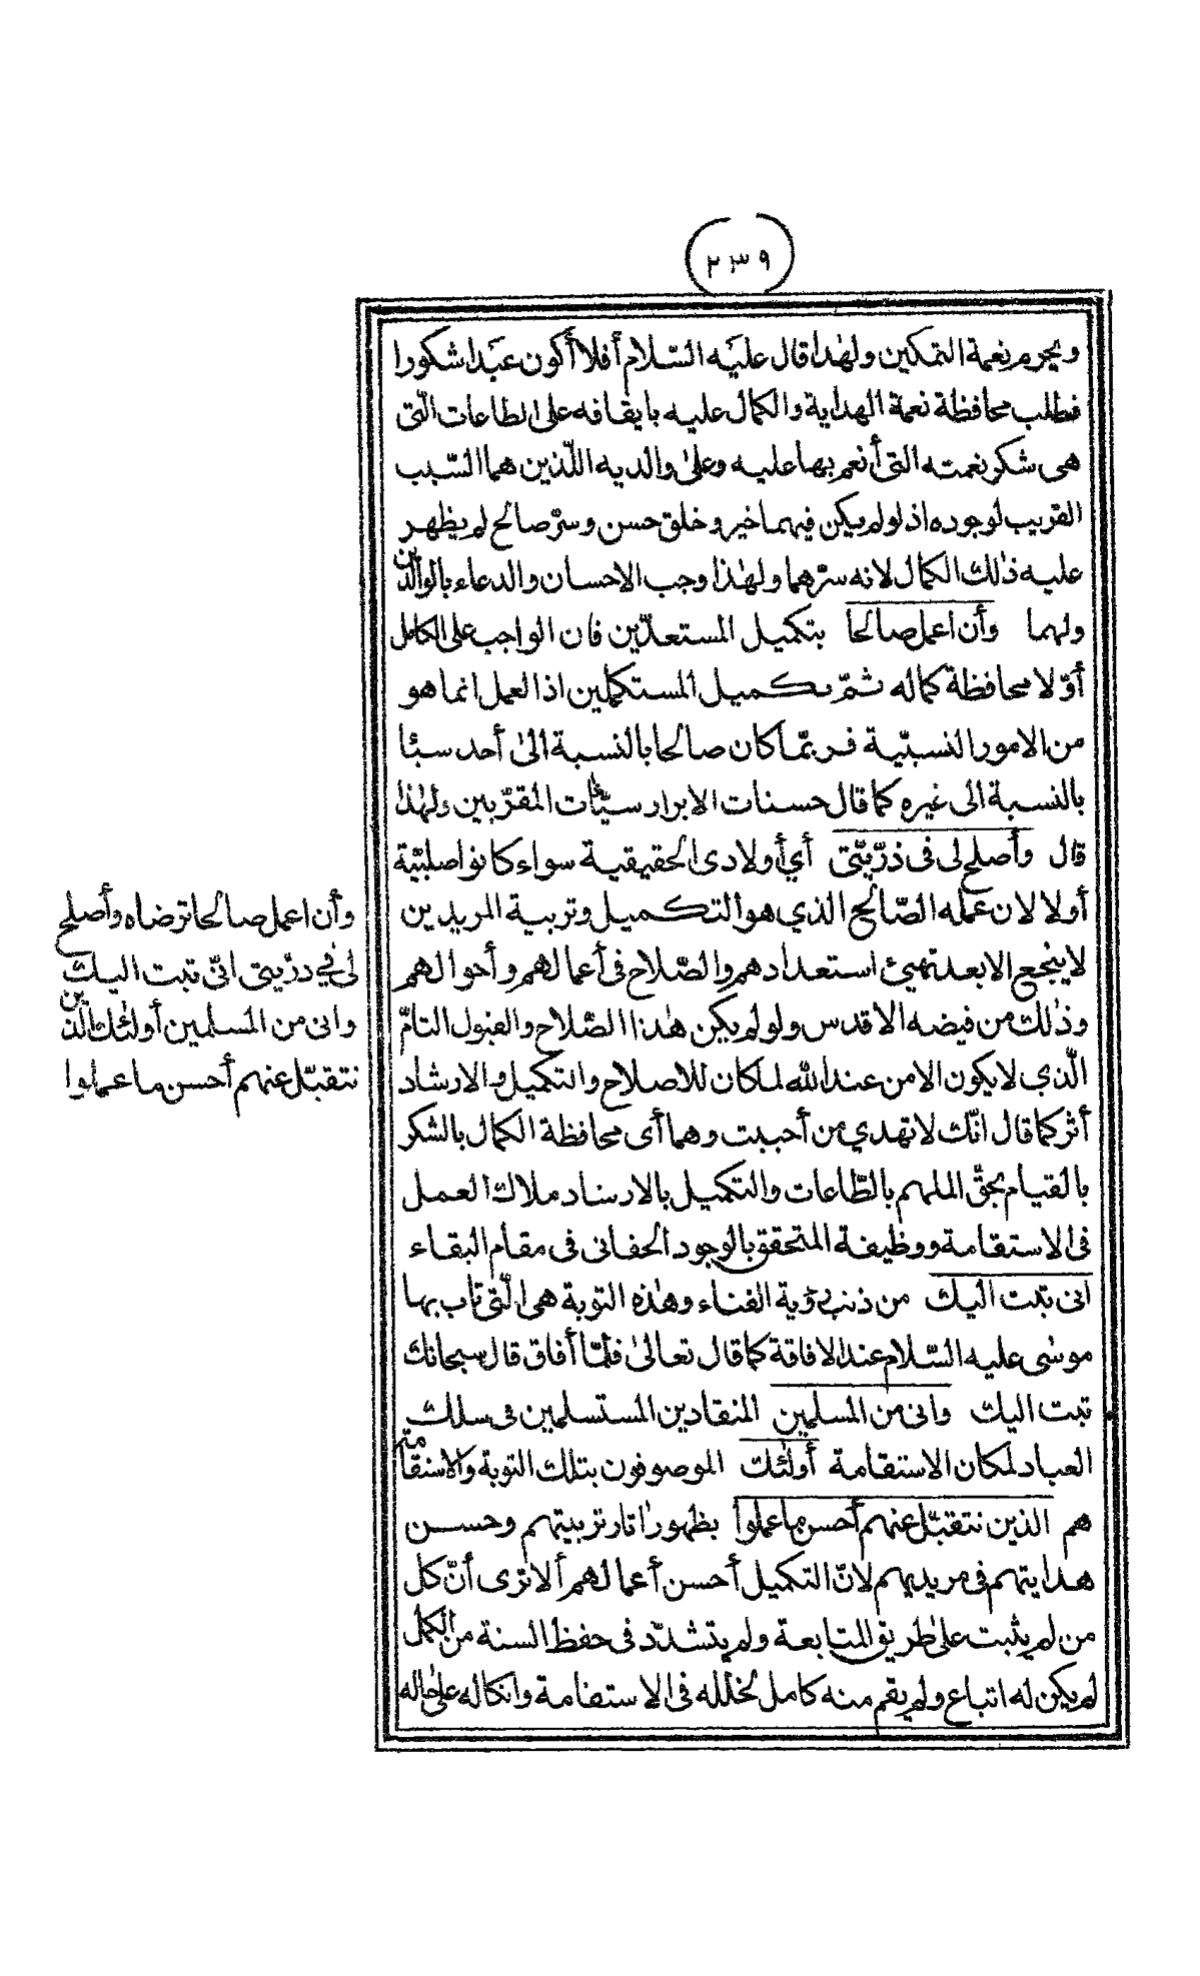 (٢٣٩)
ويحرم نعمة التمكين ولهذا قال عليه السّلام أفلا أكون عبدا شكورا
فطلب محافظة نعمة الهداية والكمال عليه بايقافه على الطاعات الّتى
هى شكر نعمته التى أنعم بها عليه وعلى والديه اللّذين هما السّبب
القريب لوجوده اذ لو لم يكن فيهما خير وخلق حسن وسرّ صالح لم يظهر
عليه ذلك الكمال لانه سرّهما ولهذا وجب الاحسان والدعاء بالوالدين
ولهما وأن اعمل صالحا بتكميل المستعدّين فان الواجب على الكامل
أوّلا محافظة كماله ثمّ تكميل المستكملين اذ العمل انما هو
من الامور النسبيّية فربّما كان صالحا بالنسبة الى أحد سيئا
بالنسبة الى غيره كما قال حسنات الابرار سيّئات المقرّبين ولهذا
قال وأصلح لى فى ذرّيّتى أي أولادى الحقيقية سواء كانوا صلبيّة
أولا لان عمله الصّالح الذي هو التكميل وتربية المريدين
لا ينجع الا بعد تهيئ استعدادهم والصّلاح فى أعمالهم وأحوالهم
وذلك من فيضه الاقدس ولو لم يكن هذا الصّلاح والقبول التامّ
الّذي لا يكون الا من عند الله لما كان للاصلاح والتكميل والارشاد
أثر كما قال انّك لا تهدي من أحببت وهما أى محافظة الكمال بالشكر
بالقيام بحقّ الملهم بالطّاعات والتكميل بالارشاد ملاك العمل
فى الاستقامة ووظيفة المتحقق بالوجود الحقانى فى مقام البقاء
انى تبت اليك من ذنب رؤية الفناء وهذه التوبة هى الّتى تاب بها
موسى عليه السّلام عند الافاقة كما قال تعالى فلمّا أفاق قال سبحانك
تبت اليك وانى من المسلمين المنقادين المستسلمين فى سلك
العباد لمكان الاستقامة أولئك الموصوفون بتلك التوبة والاستقامة
هم الذين نتقبّل عنهم أحسن ما عملوا بظهور اثار تربيتهم وحسن
هدايتهم فى مريديهم لانّ التكميل أحسن أعمالهم ألا ترى أنّ كل
من لم يثبت على طريق المتابعة ولم يتشدّد فى حفظ السنة من الكمل
لم يكن له اتباع ولم يقم منه كامل لخلله فى الاستقامة واتكاله على حاله
وأن اعمل صالحا ترضاه وأصلح
لى في ذرّيتى انّى تبت اليك
وانى من المسلمين أولئك الّذين
نتقبّل عنهم أحسن ما عملوا